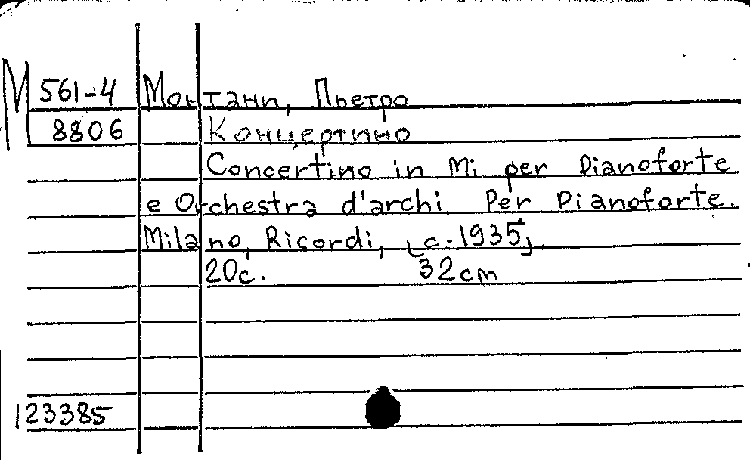 М 561-4 Монтани, Пьетро
8806 Концертино
Concertino in Mi per Pianoforte
e Orchestra d'archi. Per Pianoforte.
Milano, Ricordi, [c.1935].
20c. 32cm
123385